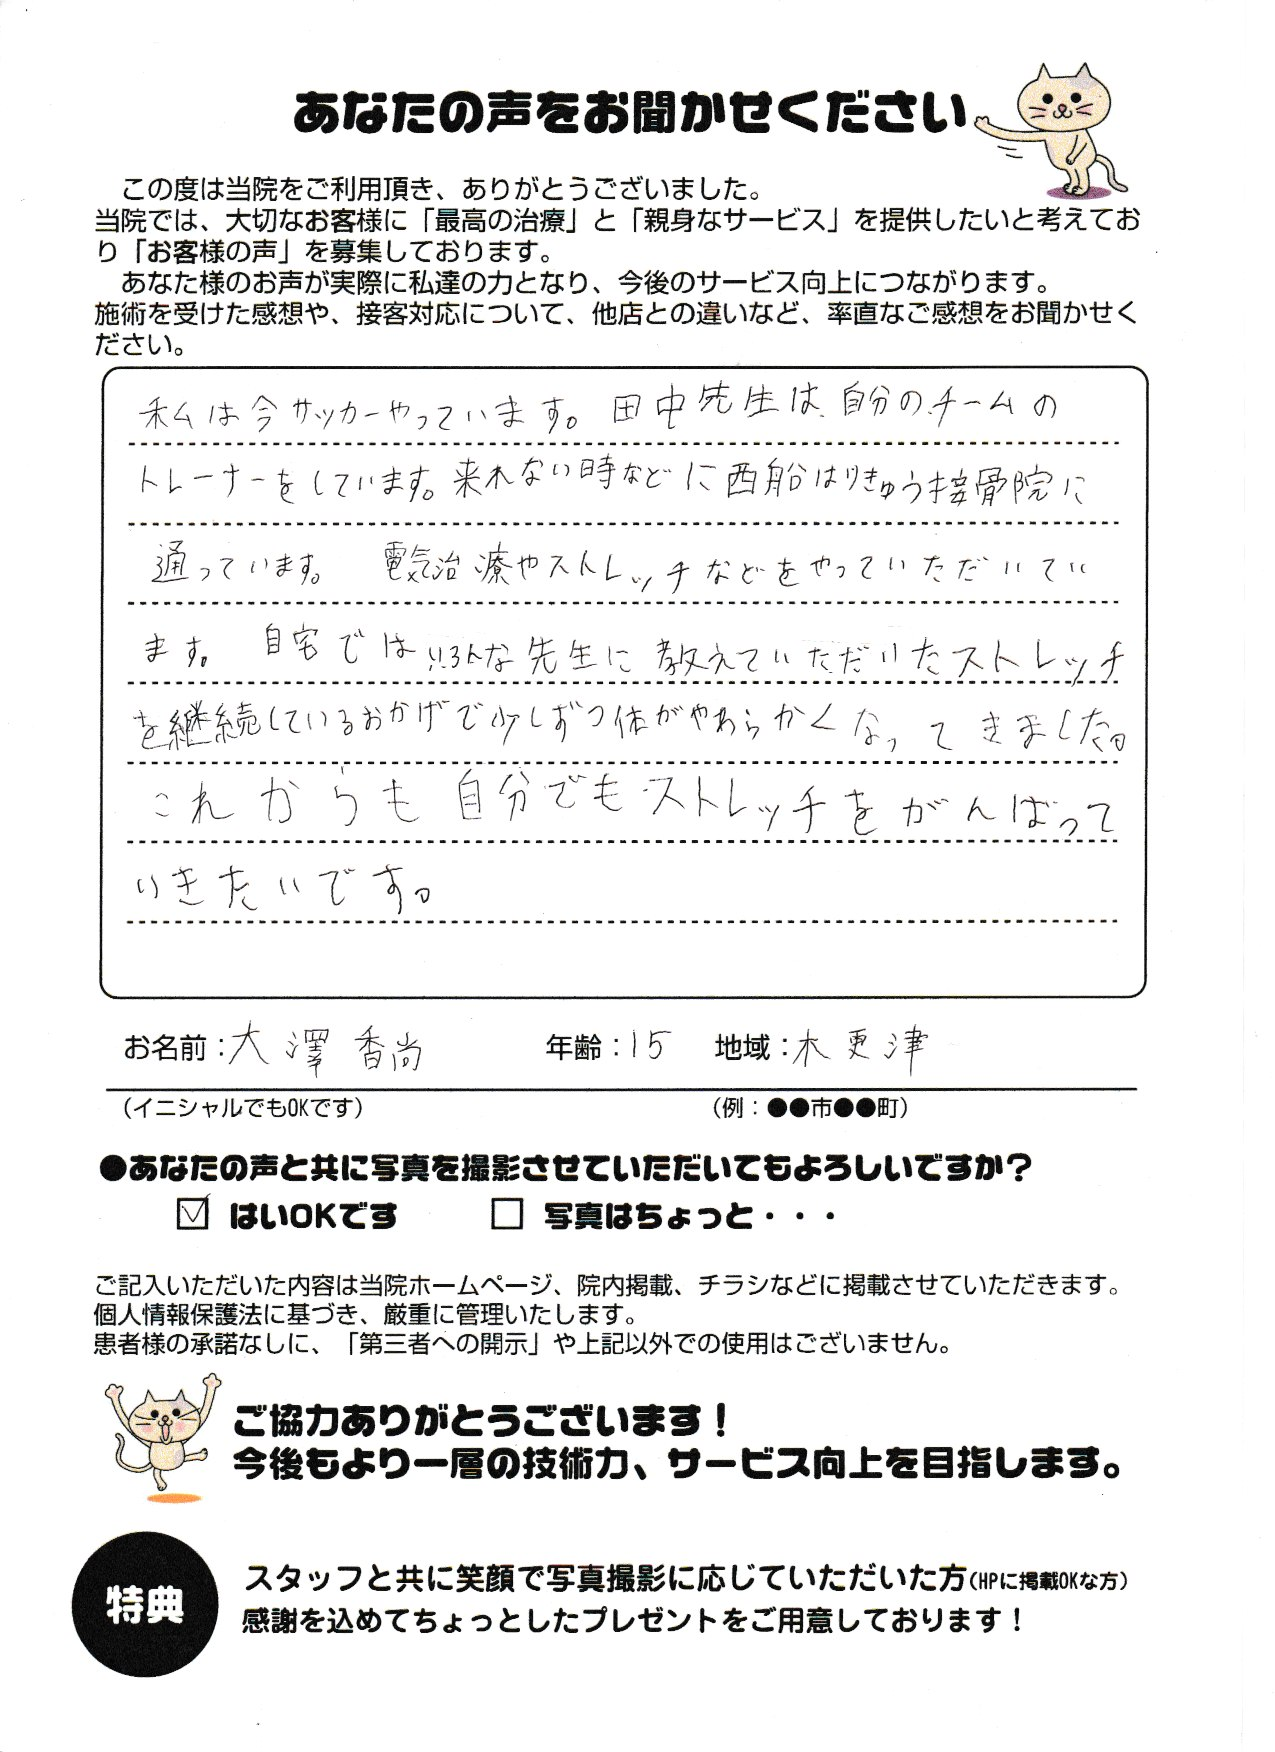 あなたの声をお聞かせください
この度は当院をご利用頂き、ありがとうございました。
当院では、大切なお客様に「最高の治療」と「親身なサービス」を提供したいと考えてお
り「お客様の声」を募集しております。
あなた様のお声が実際に私達の力となり、今後のサービス向上につながります。
施術を受けた感想や、接客対応について、他店との違いなど、率直なご感想をお聞かせく
ださい。
私は今サッカーやっています。田中先生は自分のチームの
トレーナーをしています。来れない時などに西船はりきゅう接骨院に
通っています。 電気治療やストレッチなどをやっていただいてい
ます。 自宅ではいろんな先生に教えていただいたストレッチ
を継続しているおかげで少しずつ体がやわらかくなってきました。
これからも自分でもストレッチをがんばって
いきたいです。
お名前：大澤香尚 年齢：15 地域：木更津
(イニシャルでもOKです) (例：●●市●●町)
●あなたの声と共に写真を撮影させていただいてもよろしいですか？
☑ はいOKです □ 写真はちょっと・・・
ご記入いただいた内容は当院ホームページ、院内掲載、チラシなどに掲載させていただきます。
個人情報保護法に基づき、厳重に管理いたします。
患者様の承諾なしに、「第三者への開示」や上記以外での使用はございません。
ご協力ありがとうございます！
今後もより一層の技術力、サービス向上を目指します。
特典
スタッフと共に笑顔で写真撮影に応じていただいた方(HPに掲載OKな方)
感謝を込めてちょっとしたプレゼントをご用意しております！